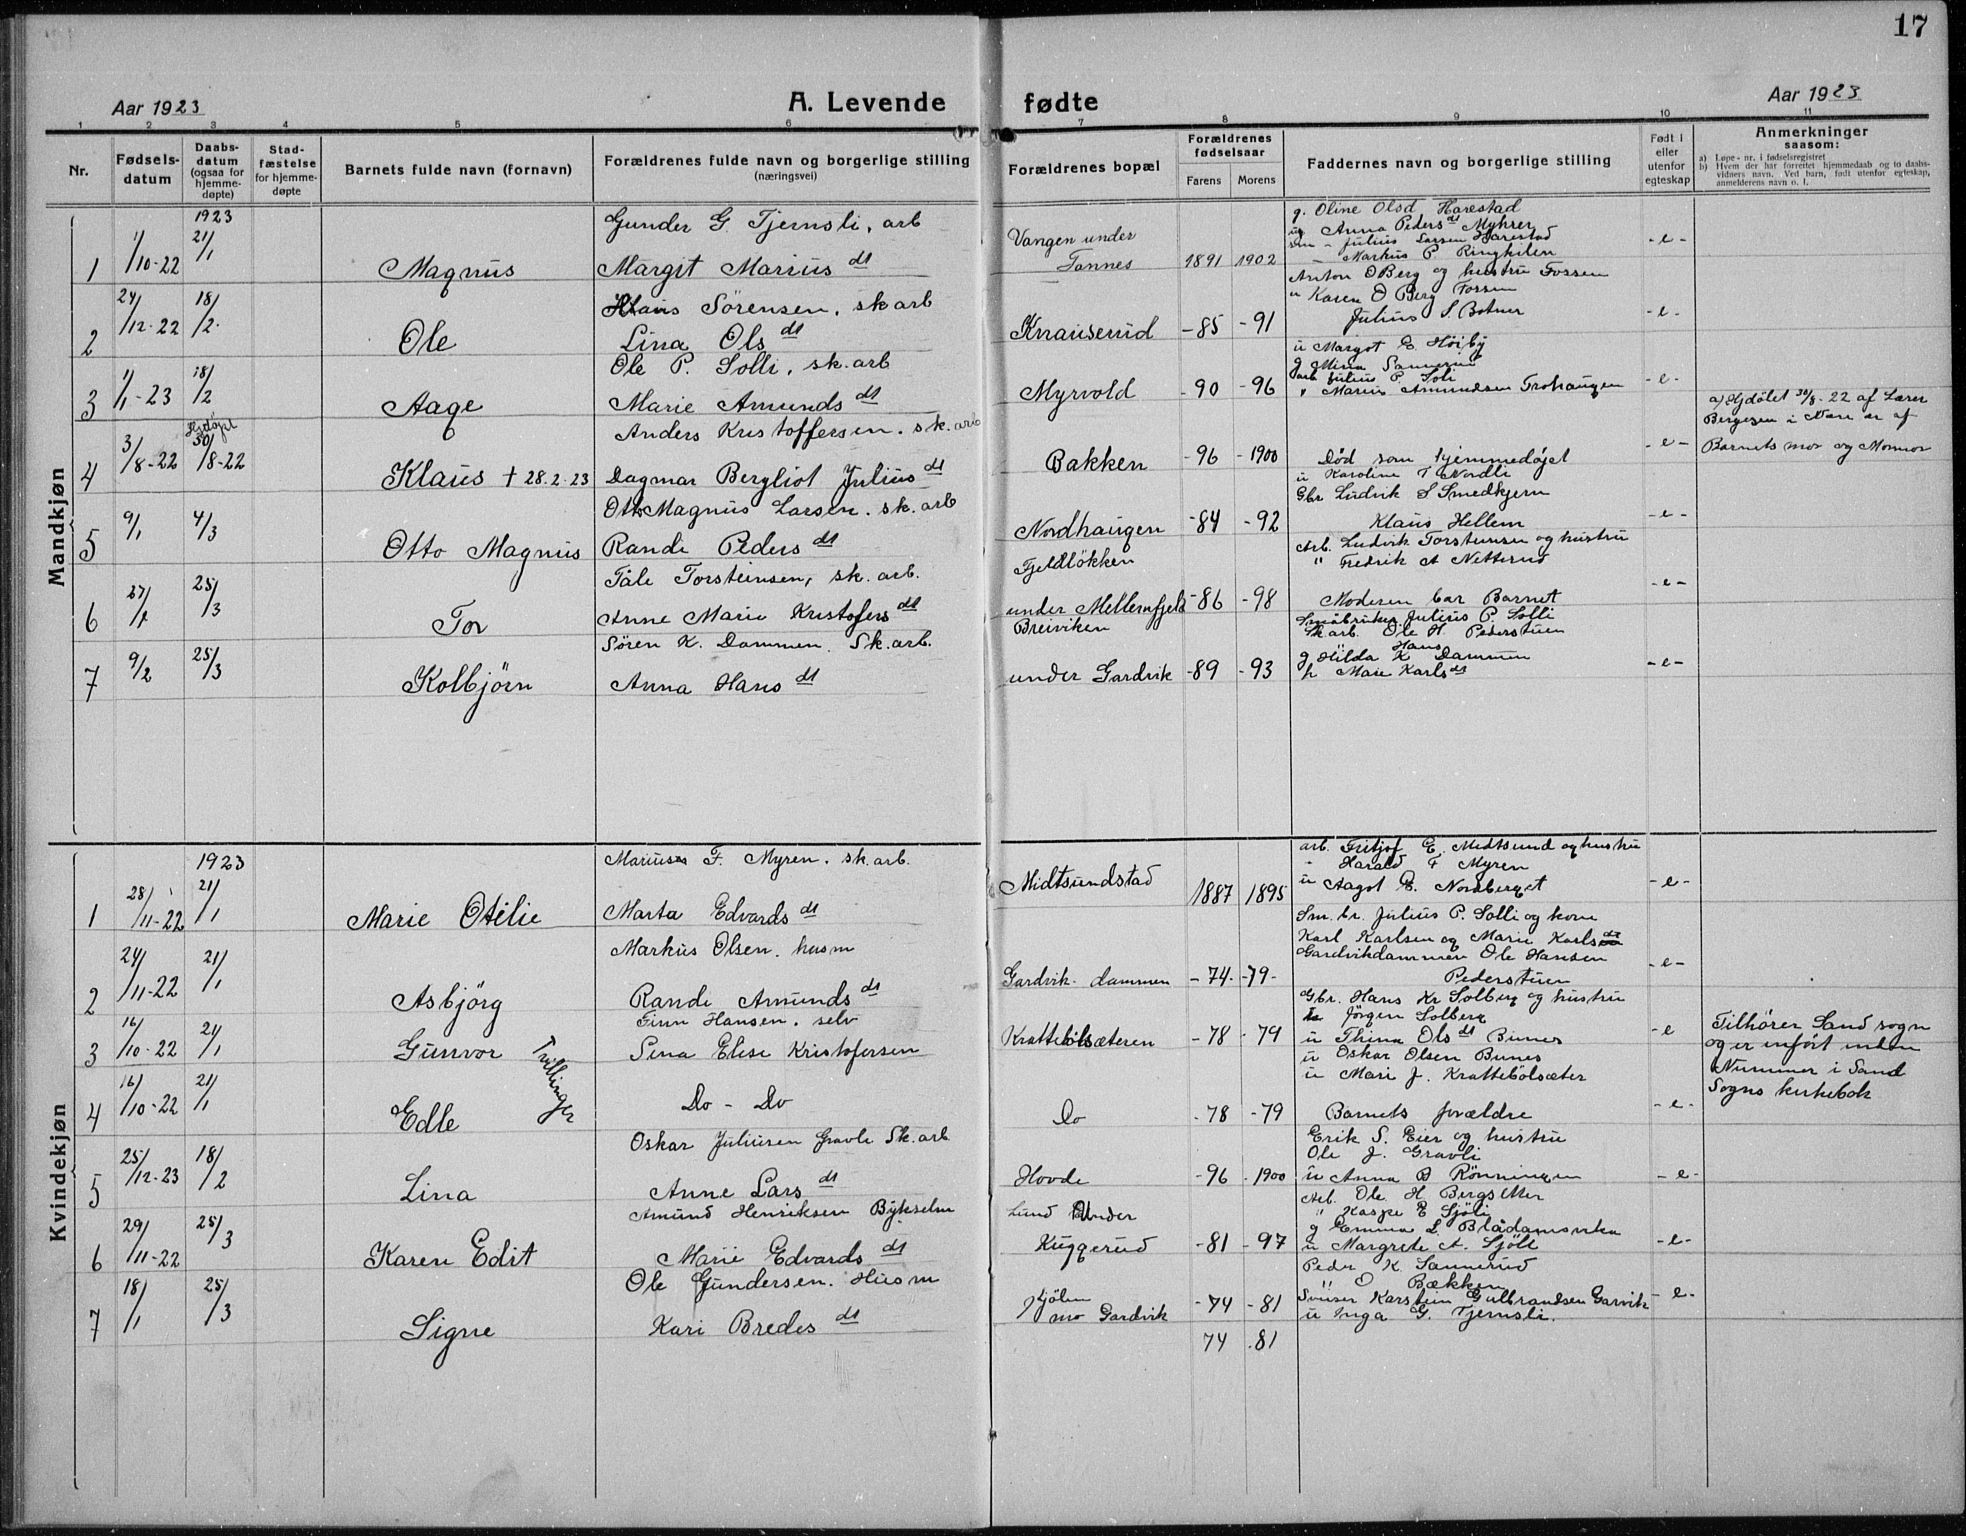 17
Aar 1923
A. Levende fødte
Aar 1923
1 2 3 4 5 6 7 8 9 10 11
Nr.
Fødsels-datum
Daabs-datum (ogsaa for hjemme-døpte)
Stad-fæstelse for hjemme-døpte
Barnets fulde navn (fornavn)
Forældrenes fulde navn og borgerlige stilling (næringsvei)
Forældrenes bopæl
Forældrenes fødselsaar
Farens Morens
Faddernes navn og borgerlige stilling
Født i eller utenfor egteskap
Anmerkninger saasom:
a) Løpe-nr. i fødselsregistret
b) Hvem der har forrettet hjemmedaab og to daabs-vidners navn. Ved barn, født utenfor egteskap, anmelderens navn o. l.
Mandkjøn
1923
1 1/10-22 21/1 Magnus
Gunder G. Tjernsli, arb
Margit Marius dt
Vangen under
Tannes 1891 1902
g. Oline Olsd Harestad
ug Anna Peders dt Myhrer
sm - Julius Larsen Harestad
- Markus P Ringhilen
- e -
2 24/12-22 18/2 Ole
Klaus Sørensen, sk arb
Lina Ols dt
Knauserud - 85 - 91
Anton O Berg og hustru Fossen
u Karen O Berg Fossen
Julius S Botner
- e -
3 1/1-23 18/2 Aage
Ole P. Solli, sk. arb
Marie Amunds dt
Myrvold - 90 - 96
u Margot E. Høiby
g Mina Sannerud
arb Julius P. Soli
" Marius Amundsen Frohaugen
- e -
4 3/8-22 Hjdøpt 30/8-22 Klaus + 28.2.23
Anders Kristoffersen. sk. arb
Dagmar Bergliot Julius dt
Bakken - 96 - 1900
Død som hjemmedøpt
- e -
a) Hjdøbt 30/8-22 af Lærer
Bergesen i Nære nr af
Barnets mor og Mormor
5 9/1 4/3 Otto Magnus
Otto Magnus Larsen. sk. arb
Randi Peders dt
Nordhaugen - 84 - 92
u Karoline T Nordli
Gbr Ludvik S Smedkjern
Klaus Hellem
- e -
6 27/1 25/3 Tor
Tale Torsteinsen, sk. arb.
Anne Marie Kristofers dt
Fjeldløkken
under Mellemfjeld - 86 - 98
Arb. Ludvik Torsteinsen og hustru
" Fredrik A Netterud
Moderen bar Barnet
- e -
7 9/2 25/3 Kolbjørn
Søren K. Dammen. Sk. arb.
Anna Hans dt
Breiviken
under Gardvik - 89 - 93
Småbruker Julius P. Solli
Sk arb. Ole H. Pederstuen
Hans
g Hilda K Dammen
p Marie Karls dt
- e -
Kvindekjøn
1923
1 28/11-22 21/1 Marie Otilie
Marius F. Myren. sk. arb.
Marta Edvards dt
Midtsundstad 1887 1895
arb. Fritjof E. Midtsund og hustru
- Harald F Myren
u Aagot E. Nordberget
- e -
2 24/11-22 21/1 Asbjörg
Markus Olsen. husm
Randi Amunds dt
Gardvik-dammen - 74 - 79
Sm. br. Julius P. Solli og kone
Karl Karlsen og Marie Karls dt
Gardvikdammen Ole Hansen
Pederstuen
- e -
3 16/10-22 21/1 Gunvor Tvillinger
Finn Hansen. selv
Sina Elise Kristofersen
Krattebölsæteren - 78 - 79
Gbr. Hans Kr Solberg og hustru
Jörgen Solberg
u Thina Ols dt Bunes
u Oskar Olsen Bunes
u Mari J. Krattebölsæter
- e
Tilhører Sand sogn
og er inført uden
Nummer i Sand
Sogns kirkebok
4 16/10-22 21/1 Edle
Do - Do
Do - 78 - 79
Barnets forældre
- e -
5 25/12-23 18/2 Lina
Oskar Juliusen Gravli Sk. arb
Anne Lars dt
Hovde - 96 - 1900
Erik S. Eier og hustru
Ole J. Gravli
u Anna B Rönningen
- e -
6 29/11-22 25/3 Karen Edit
Amund Henriksen Bykselm
Marie Edvards dt
Lund Under
Kuggerud - 81 - 97
Arb. Ole H Bergsetter
" Kaspe E Sjöli
g Emma L
u Margrete A. Sjöli
- e -
7 18/1 25/3 Signe
Ole Gundersen. Husm
Kari Bredes dt
Hjölen
mo Gardvik - 74 - 81
74 .81
Peder K. Sannerud
" O Bækken
Karstein Gulbrandsen Garvik
u Inga G. Tjernsli.
- e -